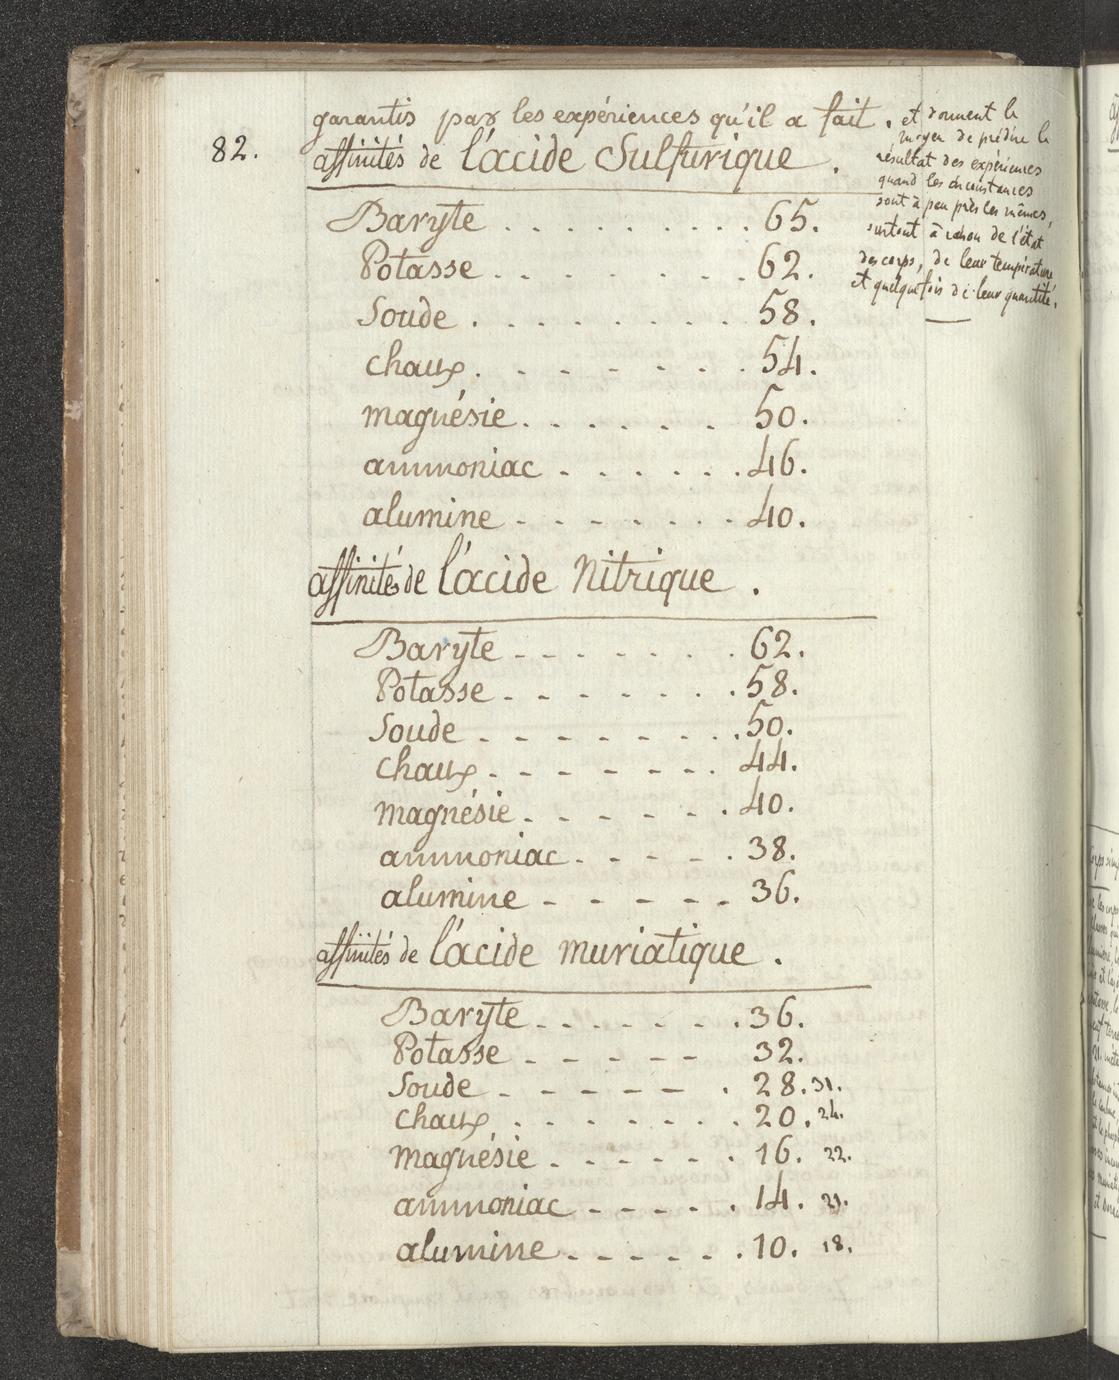 82.
garantis par les expériences qu'il a fait.
affinités de l'acide Sulfurique.
Baryte . . . . . . . . . . 65.
Potasse . . . . . . . . 62.
Soude . . . . . . . . . 58.
chaux . . . . . . . . 54.
magnésie . . . . . . 50.
ammoniac . . . . . . 46.
alumine . . . . . . . 40.
affinités de l'acide nitrique.
Baryte . . . . . . . 62.
Potasse . . . . . . . . 58.
Soude . . . . . . . . . 50.
chaux . . . . . . . . 44.
magnésie . . . . . . 40.
ammoniac . . . . . 38.
alumine . . . . . . 36.
affinités de l'acide muriatique.
Baryte . . . . . . . 36.
Potasse . . . . . 32.
Soude . . . . . . 28. 31.
chaux . . . . . . . . 20. 24.
magnésie . . . . . . 16. 22.
ammoniac . . . . . 14. 21.
alumine . . . . . . 10. 18.
et donnent le
moyen de prédire le
résultat des expériences
quand les circonstances
sont à peu près les mêmes,
surtout à raison de l'état
des corps, de leur température
et quelquefois de leur quantité.